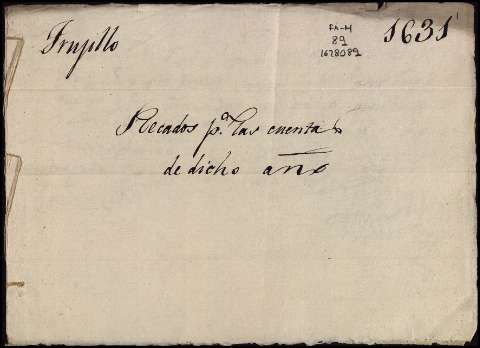 Trujillo
FA-H
89
1678089
1631
Recados pª las cuentas
de dicho año